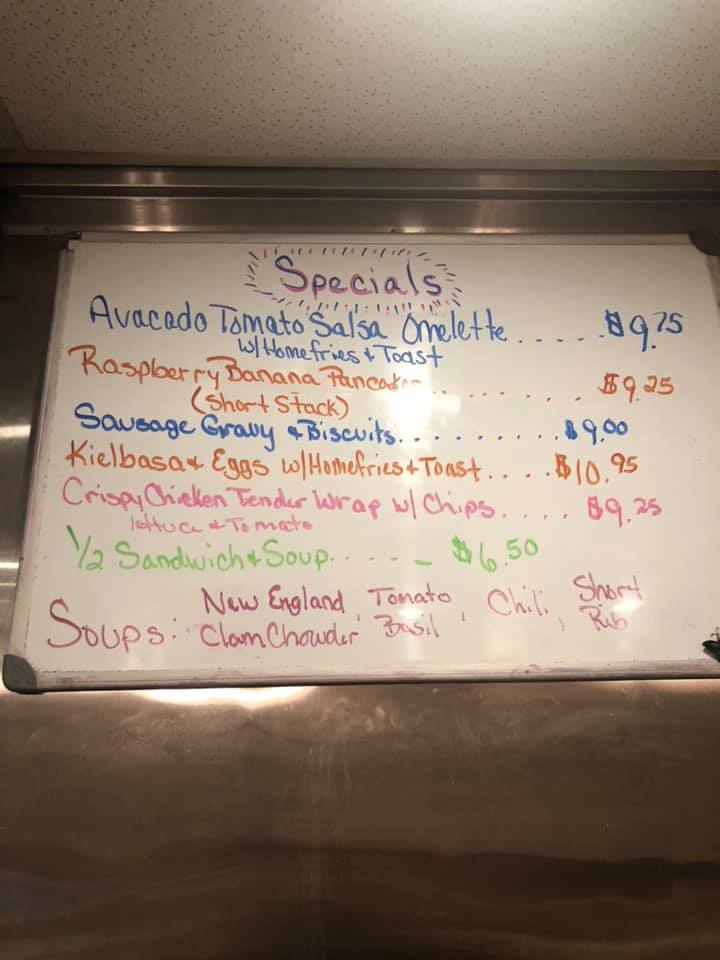 Specials
Avacado Tomato Salsa Omelette..... $9.75
w/Homefries & Toast
Raspberry Banana Pancakes....... $9.25
(Short Stack)
Sausage Gravy & Biscuits.......... $9.00
Kielbasa & Eggs w/Homefries & Toast.... $10.95
Crispy Chicken Tender Wrap w/ Chips..... $9.25
lettuce & Tomato
1/2 Sandwich & Soup..... $6.50
Soups: New England Clam Chowder, Tomato Basil, Chili, Short Rib